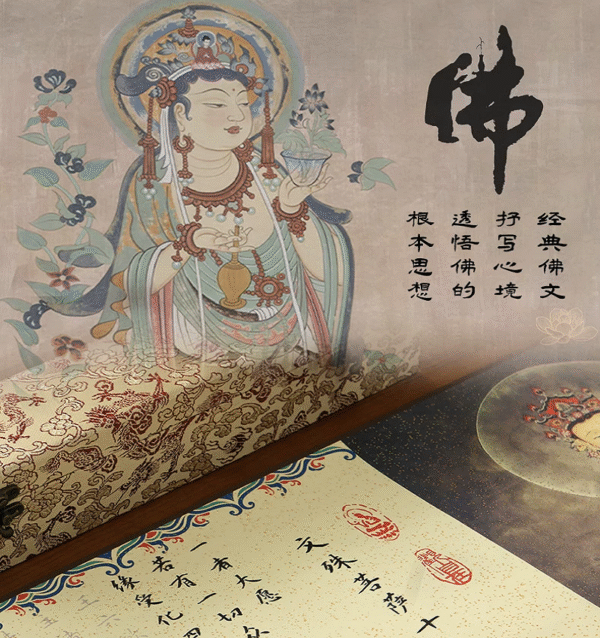 佛
经典佛文
抒写心境
透悟佛的
根本思想
文殊菩萨十
一者大愿
若有一切众
缘受化四